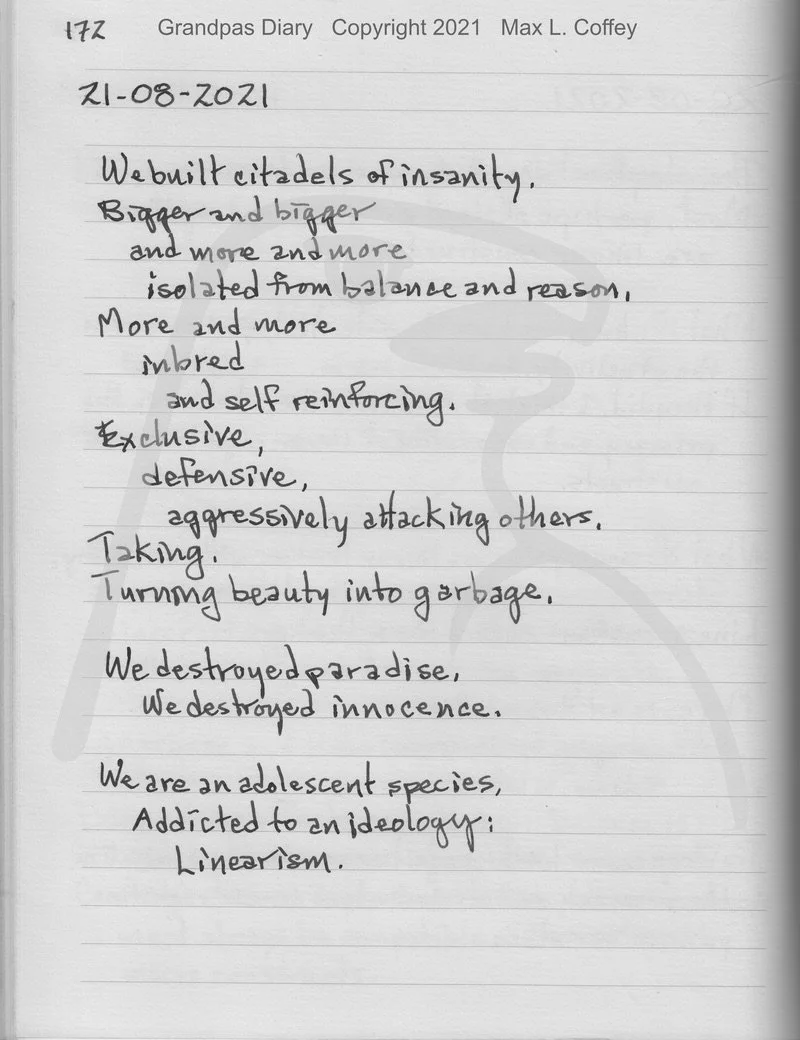 172 Grandpas Diary Copyright 2021 Max L. Coffey
21-08-2021
We built citadels of insanity.
Bigger and bigger
and more and more
isolated from balance and reason,
More and more
inbred
and self reinforcing.
Exclusive,
defensive,
aggressively attacking others.
Taking.
Turning beauty into garbage.
We destroyed paradise,
We destroyed innocence.
We are an adolescent species,
Addicted to an ideology:
Linearism.